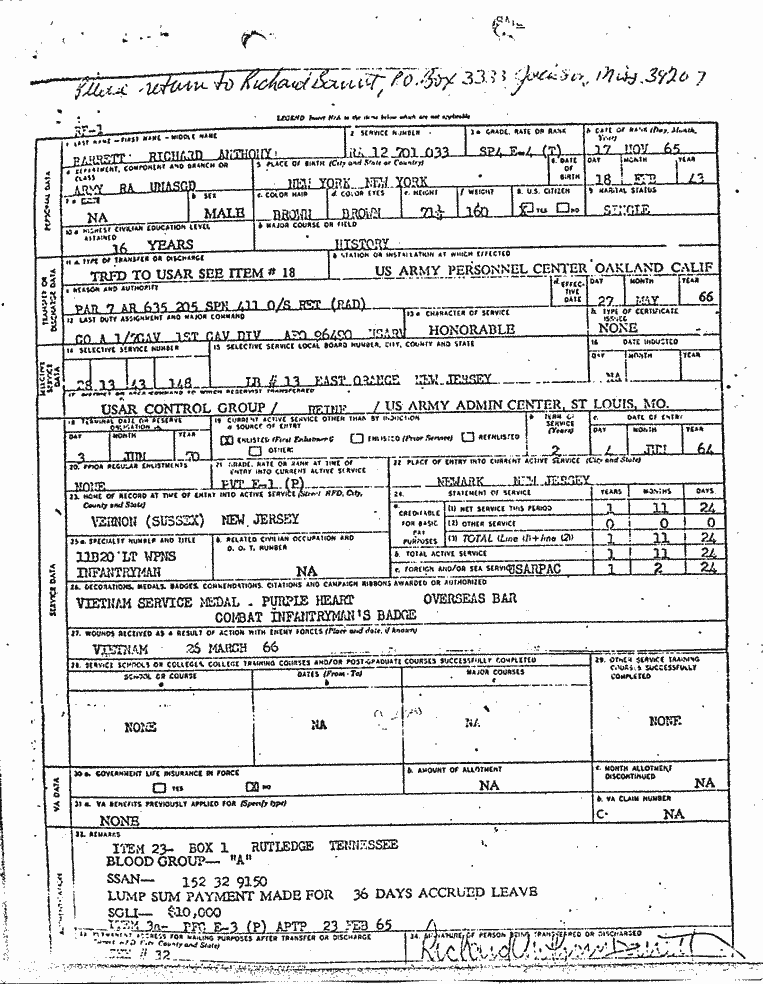 Please return to Richard Barrett, P.O. Box 3333 Jackson, Miss. 39207
LEGEND Insert N/A in the items below which are not applicable
RF-1
1 LAST NAME—FIRST NAME—MIDDLE NAME
2 SERVICE NUMBER
3 a GRADE, RATE OR RANK
b DATE OF RANK (Day, Month, Year)
BARRETT RICHARD ANTHONY
RA 12 701 033
SP4 E-4 (T)
17 NOV 65
4 DEPARTMENT, COMPONENT AND BRANCH OR CLASS
5 PLACE OF BIRTH (City and State or Country)
DATE OF BIRTH
DAY MONTH YEAR
ARMY RA UNASGD
NEW YORK NEW YORK
18 FEB 43
b SEX
c COLOR HAIR
d COLOR EYES
e HEIGHT
f WEIGHT
8. U.S. CITIZEN
9 MARITAL STATUS
NA
MALE
BROWN
BROWN
71½
160
X YES NO
SINGLE
10 a HIGHEST CIVILIAN EDUCATION LEVEL ATTAINED
b MAJOR COURSE OR FIELD
16 YEARS
HISTORY
11 a TYPE OF TRANSFER OR DISCHARGE
b STATION OR INSTALLATION AT WHICH EFFECTED
TRFD TO USAR SEE ITEM # 18
US ARMY PERSONNEL CENTER OAKLAND CALIF
c REASON AND AUTHORITY
d EFFECTIVE DATE
DAY MONTH YEAR
PAR 7 AR 635 205 SPN 411 O/S RET (R&D)
27 MAY 66
12 LAST DUTY ASSIGNMENT AND MAJOR COMMAND
13 a CHARACTER OF SERVICE
b. TYPE OF CERTIFICATE ISSUED
CO A 1/7CAV 1ST CAV DIV APO 96490 USARV
HONORABLE
NONE
14 SELECTIVE SERVICE NUMBER
15 SELECTIVE SERVICE LOCAL BOARD NUMBER, CITY, COUNTY AND STATE
16 DATE INDUCTED
DAY MONTH YEAR
28 13 43 148
LB # 13 EAST ORANGE NEW JERSEY
NA
USAR CONTROL GROUP / REINF / US ARMY ADMIN CENTER, ST LOUIS, MO.
18 TERMINAL DATE OF RESERVE OBLIGATION
19 CURRENT ACTIVE SERVICE OTHER THAN BY INDUCTION
a SOURCE OF ENTRY
b TERM OF SERVICE (Years)
c. DATE OF ENTRY
DAY MONTH YEAR
X ENLISTED (First Enlistment) ENLISTED (Prior Service) REENLISTED
DAY MONTH YEAR
OTHER:
3 JUN 70
2
4 JUN 64
20. PRIOR REGULAR ENLISTMENTS
21 GRADE, RATE OR RANK AT TIME OF ENTRY INTO CURRENT ACTIVE SERVICE
22 PLACE OF ENTRY INTO CURRENT ACTIVE SERVICE (City and State)
NONE
PVT E-1 (P)
NEWARK NEW JERSEY
23. HOME OF RECORD AT TIME OF ENTRY INTO ACTIVE SERVICE (Street RFD, City, County and State)
24. STATEMENT OF SERVICE
YEARS MONTHS DAYS
VERNON (SUSSEX) NEW JERSEY
CREDITABLE FOR BASIC PAY PURPOSES
(1) NET SERVICE THIS PERIOD 1 11 24
(2) OTHER SERVICE 0 0 0
(3) TOTAL (Line (1)+ line (2)) 1 11 24
25 a SPECIALTY NUMBER AND TITLE
b RELATED CIVILIAN OCCUPATION AND D. O. T. NUMBER
b. TOTAL ACTIVE SERVICE 1 11 24
11B20 LT WPNS INFANTRYMAN
NA
c. FOREIGN AND/OR SEA SERVICE USARPAC 1 2 24
26. DECORATIONS, MEDALS, BADGES, COMMENDATIONS, CITATIONS AND CAMPAIGN RIBBONS AWARDED OR AUTHORIZED
VIETNAM SERVICE MEDAL PURPLE HEART OVERSEAS BAR
COMBAT INFANTRYMAN'S BADGE
27. WOUNDS RECEIVED AS A RESULT OF ACTION WITH ENEMY FORCES (Place and date, if known)
VIETNAM 26 MARCH 66
28. SERVICE SCHOOLS OR COLLEGES, COLLEGE TRAINING COURSES AND/OR POST-GRADUATE COURSES SUCCESSFULLY COMPLETED
29. OTHER SERVICE TRAINING COURSES SUCCESSFULLY COMPLETED
SCHOOL OR COURSE
DATES (From - To)
MAJOR COURSES
NONE
NA
NA
NONE
30 a. GOVERNMENT LIFE INSURANCE IN FORCE
b. AMOUNT OF ALLOTMENT
c. MONTH ALLOTMENT DISCONTINUED
YES X NO
NA
NA
31 a. VA BENEFITS PREVIOUSLY APPLIED FOR (Specify type)
b. VA CLAIM NUMBER
NONE
C- NA
32. REMARKS
ITEM 23- BOX 1 RUTLEDGE TENNESSEE
BLOOD GROUP— "A"
SSAN— 152 32 9150
LUMP SUM PAYMENT MADE FOR 36 DAYS ACCRUED LEAVE
SGLI— $10,000
ITEM 3a- PFC E-3 (P) APTP 23 FEB 65
33 PERMANENT ADDRESS FOR MAILING PURPOSES AFTER TRANSFER OR DISCHARGE
34. SIGNATURE OF PERSON BEING TRANSFERRED OR DISCHARGED
# 32
Richard Anthony Barrett
PERSONAL DATA
TRANSFER OR DISCHARGE DATA
SELECTIVE SERVICE DATA
SERVICE DATA
VA DATA
AUTHENTICATION